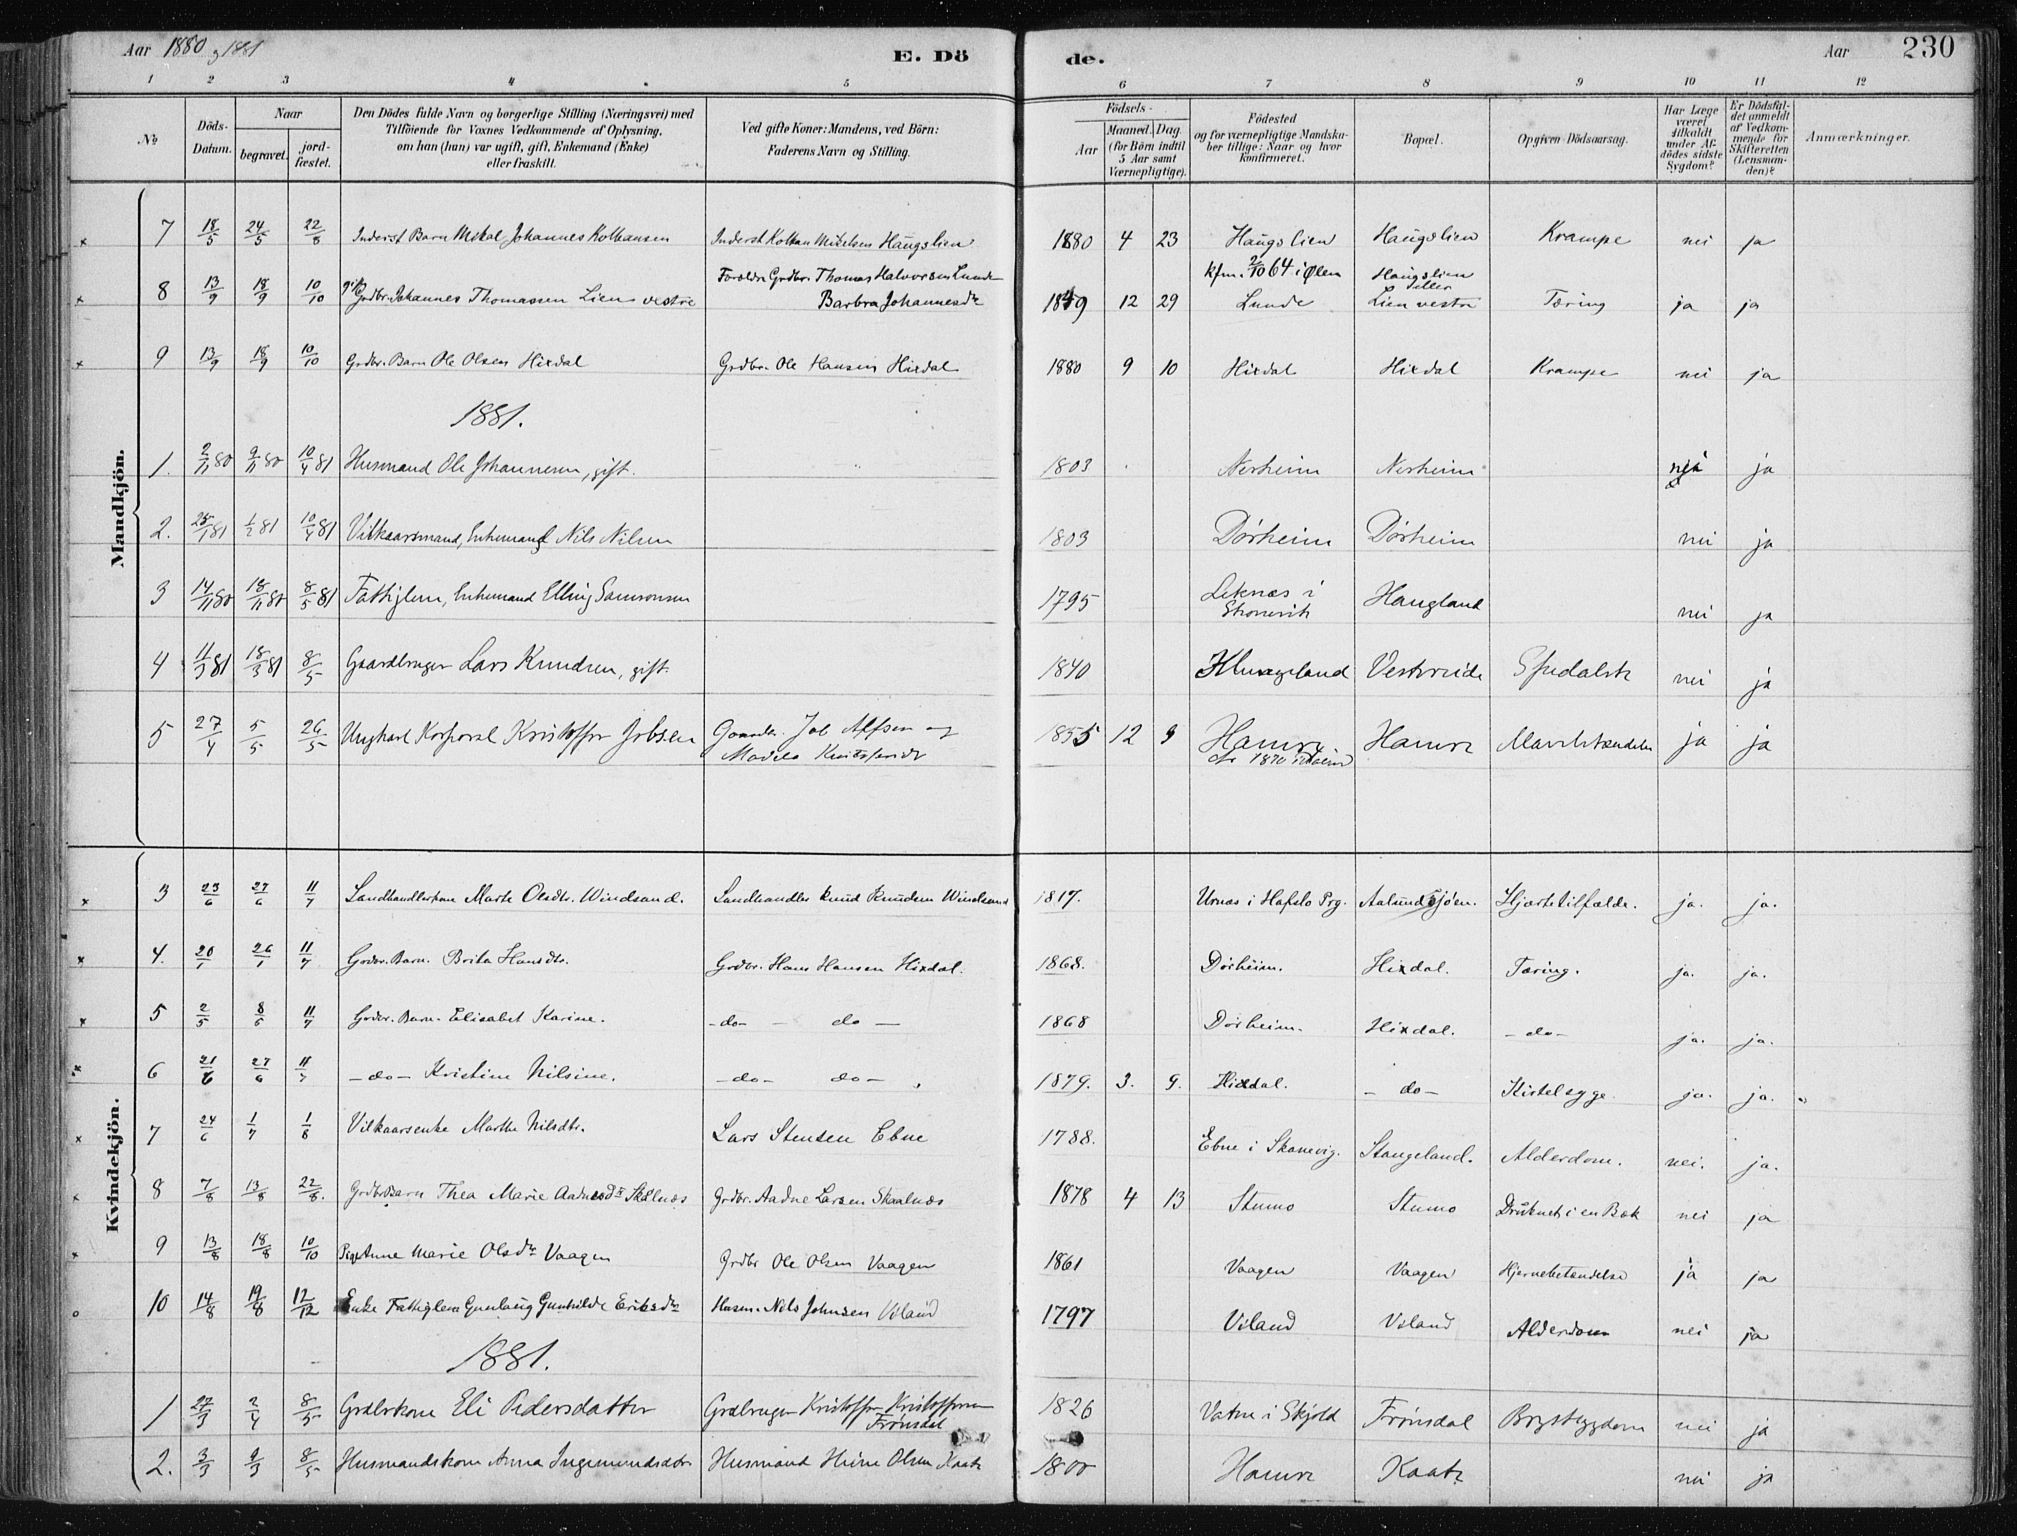 Aar 1880 og 1881 E. Dö de. Aar 230
1 2 3 4 5 6 7 8 9 10 11 12
No Döds-Datum. Naar begravet. jord-fæstet. Den Dödes fulde Navn og borgerlige Stilling (Næringsvei) med Tilföiende for Voxnes Vedkommende af Oplysning, om han (hun) var ugift, gift, Enkemand (Enke) eller fraskilt. Ved gifte Koner: Mandens, ved Börn: Faderens Navn og Stilling. Födsels- Aar Maaned. Dag. (for Börn indtil 5 Aar samt Værnepligtige). Födested og for værnepligtige Mandskaber tillige: Naar og hvor Konfirmeret. Bopæl. Opgiven Dödsaarsag. Har Læge været tilkaldt under Afdödes sidste Sygdom? Er Dödsfaldet anmeldt af Vedkommende for Skifteretten (Lensmanden)? Anmærkninger.
Mandkjön.
7 18/5 24/5 22/8 Inderst Barn Mikal Johannes Kolbansen Inderst Kolban Mikelsen Haugslien 1880 4 23 Haugslien Haugslien Krampe nei ja
8 13/9 18/9 10/10 gift Grdbr. Johannes Thomassen Lien vestre Forældre Grdbr. Thomas Halvorsen Lunde Barbra Johannesdr 1849 12 29 kfm. 2/10 64 i Ølen Lunde Haugslien Lien vestre Tæring ja ja
9 13/9 18/9 10/10 Grdbr. Barn Ole Olsen Hixdal Grdbr. Ole Hansen Hixdal 1880 9 10 Hixdal Hixdal Krampe nei ja
1881.
1. 2/11 80 9/11 80 10/4 81 Husmand Ole Johannesen, gift. 1803 Nerheim Nerheim ja
2. 25/1 81 1/2 81 10/4 81 Vilkaarsmand, Enkemand Nils Nilsen 1803 Dørheim Dørheim nei ja
3 14/11 80 18/11 80 8/5 81 Fattiglem, Enkemand Elling Samsonsen 1795 Leknæs i Skonevik Haugland nei ja
4 11/3 81 18/3 81 8/5 Gaardbruger Lars Knudsen, gift. 1840 Hlungeland Vestvride Spedalsk nei ja
5 27/4 5/5 26/5 Ungkarl Korporal Kristoffer Jobsen Gaardbr. Job Alfsen og Kristoffersdr 1855 12 9 Hamre 1870 Hamre ja ja
Kvindekjön.
3 23/6 27/6 11/7 Landhandlerkone Marte Olsdtr. Windsand. Landhandler Knud Knudsen Windsand 1817. Urnæs i Hafslo Prg. Aalundsjøen. Hjærtetilfælde. ja. ja.
4. 20/1 26/1 11/7 Grdbr. Barn. Brita Hansdtr. Grdbr. Hans Hansen Hixdal. 1868. Dørheim. Hixdal. Tæring. ja. ja.
5 2/5 8/5 11/7 Grdbr. Barn. Elisabet Karine. -do- do- 1868 Dørheim. Hixdal. -do- ja. ja.
6 21/6 27/6 11/7 -do- Kristine Nilsine. -do- do- 1879. 3. 9. Hixdal. -do- Kirtelsyge. ja. ja.
7 24/6 1/7 1/8 Vilkaarsenke Marthe Nilsdtr. Lars Stensen Ebne 1788. Ebne i Skonevig. Stangeland. Alderdom. nei. ja.
8 7/8 13/8 22/8 Grdbr Barn Thea Marie Aadnesdr Skålnæs Grdbr. Aadne Larsen Skaalnæs 1878 4 13 Stumo Stumo Druknet i en Bæk nei ja
9 13/8 18/8 10/10 Pige Anne Marie Olsdtr Vaagen Grdbr Ole Olsen Vaagen 1861 Vaagen Vaagen Hjernebetændelse ja ja
10 14/8 19/8 12/12 Enke Fattiglem Gunlaug Gunhilde Eriksdtr Husm. Nils Johnsen Viland 1797 Viland Viland Alderdom nei ja
1881.
1 27/3 2/4 8/5 Grdbrkone Eli Pedersdatter Grdbruger Kristoffer Kristoffersen Frønsdal 1826 Vatne i Skjold Frønsdal Brystsygdom nei ja
2. 3/3 9/3 8/5 Husmandskone Anna Ingemundsdtr Husmand Heine Olsen Kaate 1800 Hamre Kaate nei ja